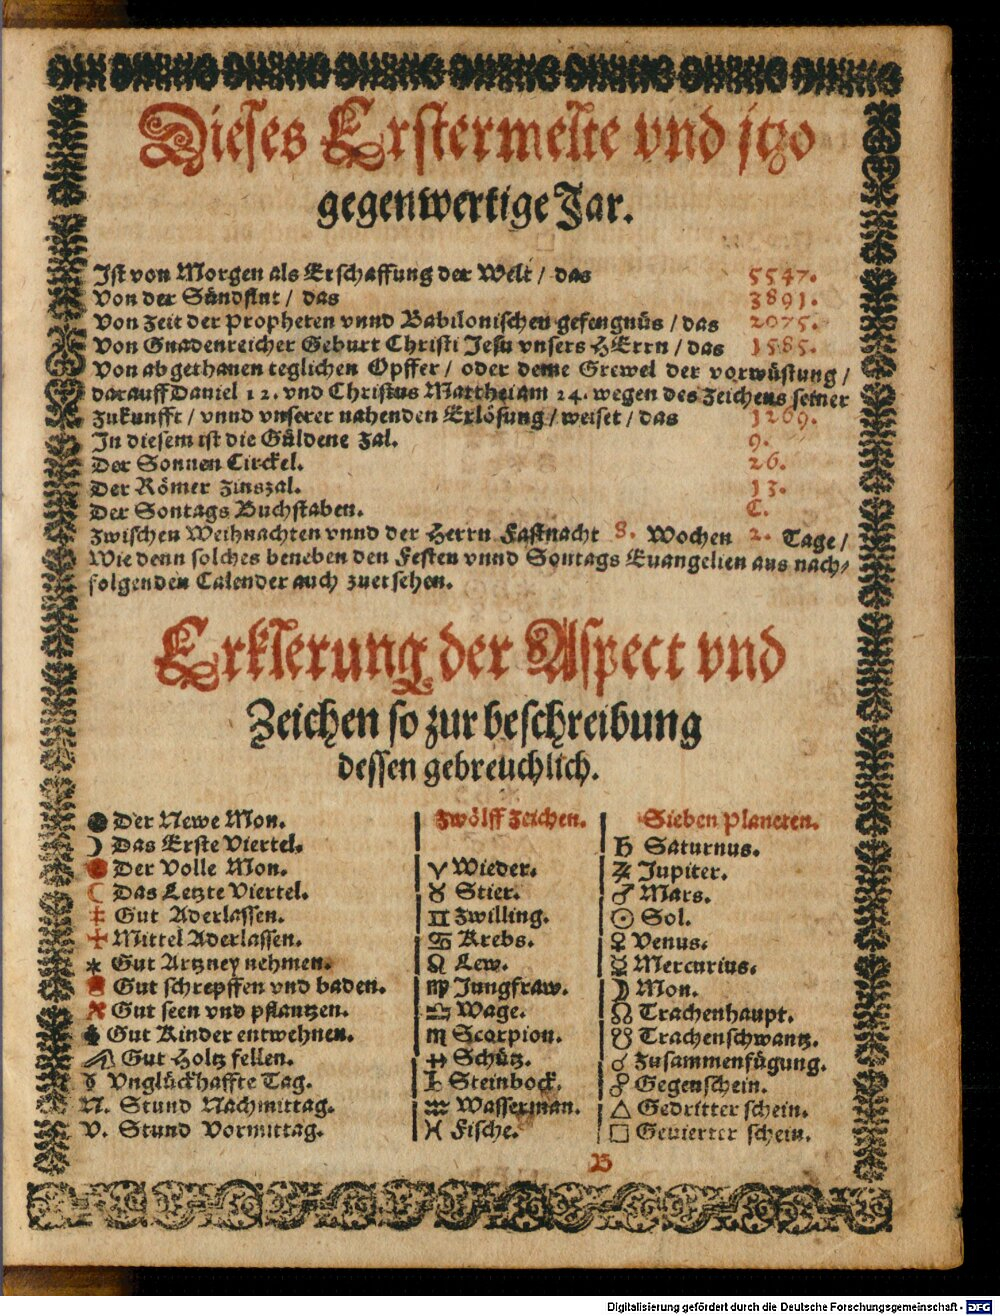 Dieses Erstermelte vnd jtzo
gegenwertige Jar.
Ist von Morgen als Erschaffung der Welt / das 5547.
Von der Sündflut / das 3891.
Von Zeit der Propheten vnnd Babilonischen gefengnüs / das 2075.
Von Gnadenreicher Geburt Christi Jesu vnsers HErrn / das 1585.
Von abgethanen teglichen Opffer / oder deme Grewel der vorwüstung /
darauff Daniel 12. vnd Christus Matthei am 24. wegen des Zeichens seiner
Zukunfft / vnnd vnserer nahenden Erlösung / weiset / das 1269.
In diesem ist die Güldene Zal. 9.
Der Sonnen Circkel. 26.
Der Römer Zinszal. 13.
Der Sontags Buchstaben. C.
Zwischen Weihnachten vnnd der Herrn Fastnacht 8. Wochen 2. Tage /
Wie denn solches beneben den Festen vnnd Sontags Euangelien aus nach-
folgenden Calender auch zuersehen.
Erklerung der Aspect vnd
Zeichen so zur beschreibung
dessen gebreuchlich.
Der Newe Mon.
☽ Das Erste Viertel.
Der Volle Mon.
☾ Das Letzte Viertel.
Gut Aderlassen.
Mittel Aderlassen.
Gut Artzney nehmen.
Gut schrepffen vnd baden.
Gut seen vnd pflantzen.
Gut Kinder entwehnen.
Gut Holtz fellen.
Vnglückhaffte Tag.
N. Stund Nachmittag.
V. Stund Vormittag.
Zwölff Zeichen.
♈ Wieder.
♉ Stier.
♊ Zwilling.
♋ Krebs.
♌ Lew.
♍ Jungfraw.
♎ Wage.
♏ Scorpion.
♐ Schütz.
♑ Steinbock.
♒ Wasserman.
♓ Fische.
Sieben Planeten.
♄ Saturnus.
♃ Jupiter.
♂ Mars.
☉ Sol.
♀ Venus.
☿ Mercurius.
☽ Mon.
☊ Trachenhaupt.
☋ Trachenschwantz.
☌ Zusammenfügung.
☍ Gegenschein.
△ Gedritter schein.
□ Geuierter schein.
B
Digitalisierung gefördert durch die Deutsche Forschungsgemeinschaft - DFG